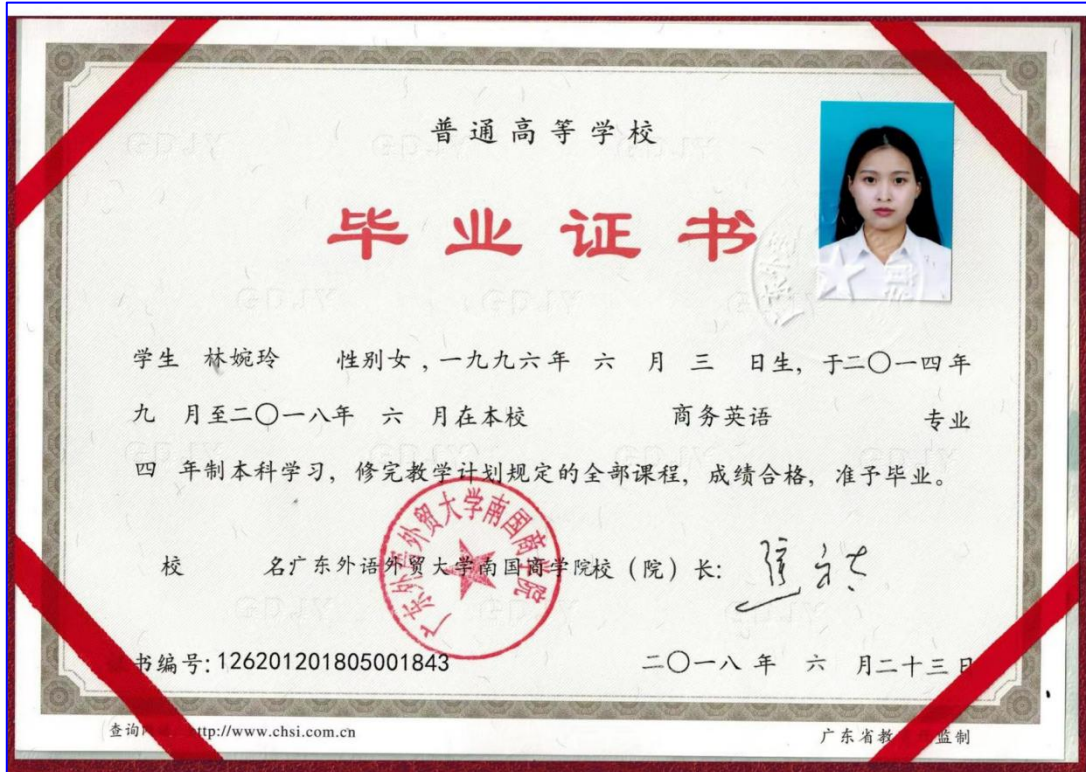 普通高等学校
毕业证书
学生 林婉玲 性别女，一九九六年 六 月 三 日生，于二〇一四年
九 月至二〇一八年 六 月在本校 商务英语 专业
四 年制本科学习，修完教学计划规定的全部课程，成绩合格，准予毕业。
广东外语外贸大学南国商学院
校 名广东外语外贸大学南国商学院校（院）长：
书编号：126201201805001843 二〇一八年 六 月二十三日
查询 http://www.chsi.com.cn 广东省教 监制